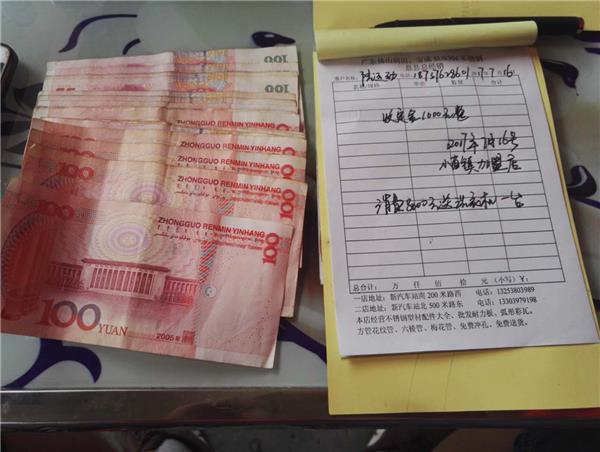 100
100
100
ZHONGGUO RENMIN YINHANG
ZHONGGUO RENMIN YINHANG
ZHONGGUO RENMIN YINHANG
100
ZHONGGUO RENMIN YINHANG
100
100
ZHONGGUO RENMIN YINHANG
100
100
YUAN
2005年
息县总经销
客户名称: 电话
名称/规格 单价 数量 合计
收定金1000元整
2017年7月16号
小茴镇加盟店
消费8000元送洗衣机一台
总合计: 万 仟 佰 拾 元 (小写)¥:
一店地址: 新汽车站南 200 米路西 电话: 13253803989
二店地址: 新汽车站北 500 米路东 电话: 13303979198
本店经营不锈钢型材配件大全、批发耐力板、弧形彩瓦。
方管花纹管、六棱管、梅花管、免费冲孔、免费送货。